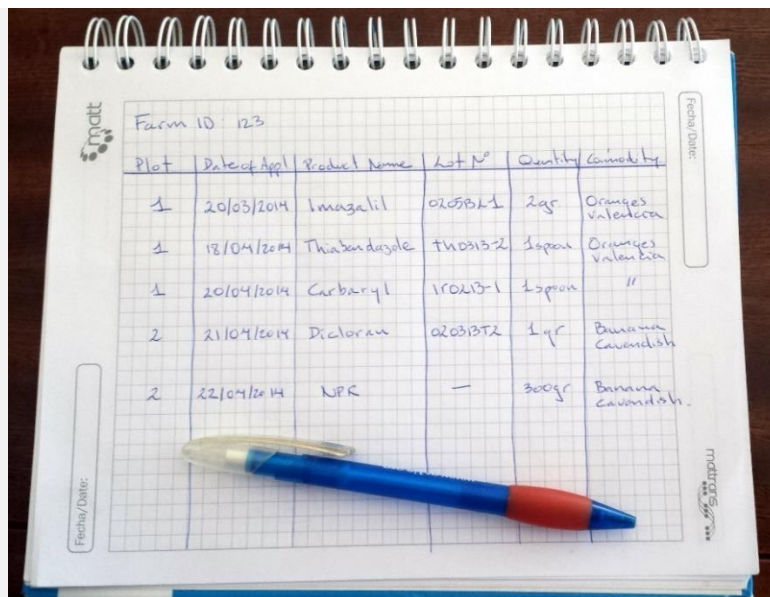 matt
Fecha/Date:
Farm ID: 123
Plot Date of Appl Product Name Lot Nº Quantity Comodity
1 20/03/2014 Imazalil 0205BL1 2gr Oranges
Valencia
1 18/04/2014 Thiabendazole th0313-2 1spoon Oranges
Valencia
1 20/04/2014 Carbaryl 1r0213-1 1spoon "
2 21/04/2014 Dicloran 020313T2 1gr Banana
Cavendish
2 22/04/2014 NPK — 300gr Banana
Cavendish.
Fecha/Date:
mattrans